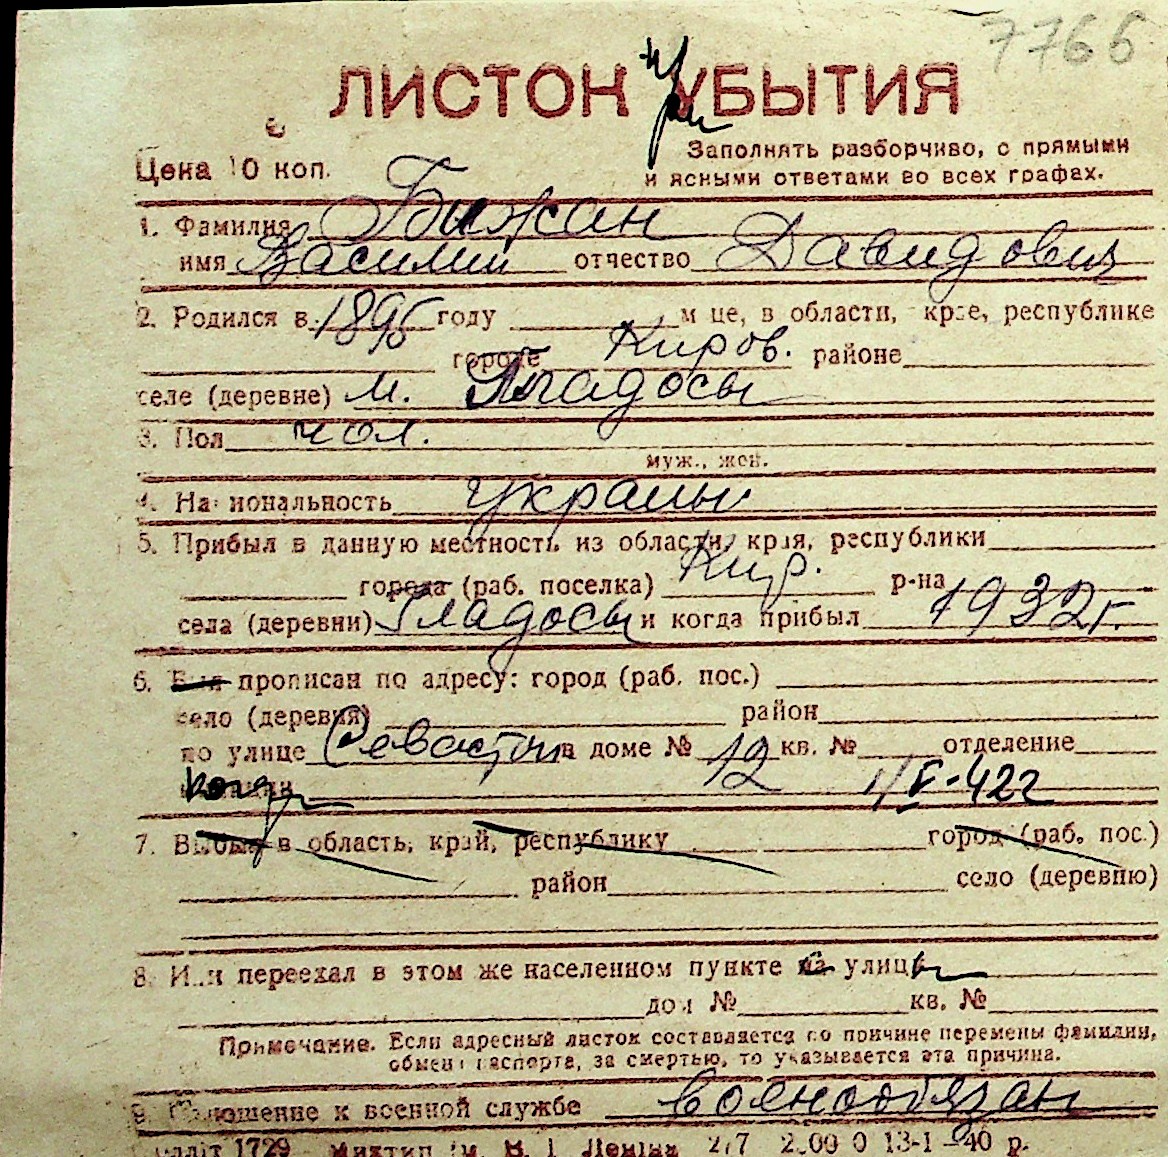 7766
ЛИСТОК при УБЫТИЯ
Цена 10 коп.
Заполнять разборчиво, с прямыми
и ясными ответами во всех графах.
1. Фамилия Бижан
имя Василий отчество Давидович
2. Родился в 1895 году м-це, в области, крае, республике
городе Киров. районе
селе (деревне) м. Гладосы
3. Пол чол.
муж., жен.
4. Национальность украинец
5. Прибыл в данную местность из области, края, республики
города (раб. поселка) Кир. р-на
села (деревни) Гладосы и когда прибыл 1932 г.
6. прописан по адресу: город (раб. пос.)
село (деревня) район
по улице Севастоп в доме № 12 кв. № отделение
милиции 1/V-42г
7. Выбыл в область, край, республику город (раб. пос.)
район село (деревню)
8. Или переехал в этом же населенном пункте с улицы
дом № кв. №
Примечание. Если адресный листок составляется по причине перемены фамилии,
обмена паспорта, за смертью, то указывается эта причина.
9. Отношение к военной службе военнообязан
1729 им. В. Ленина 2/7 13-1-40 р.